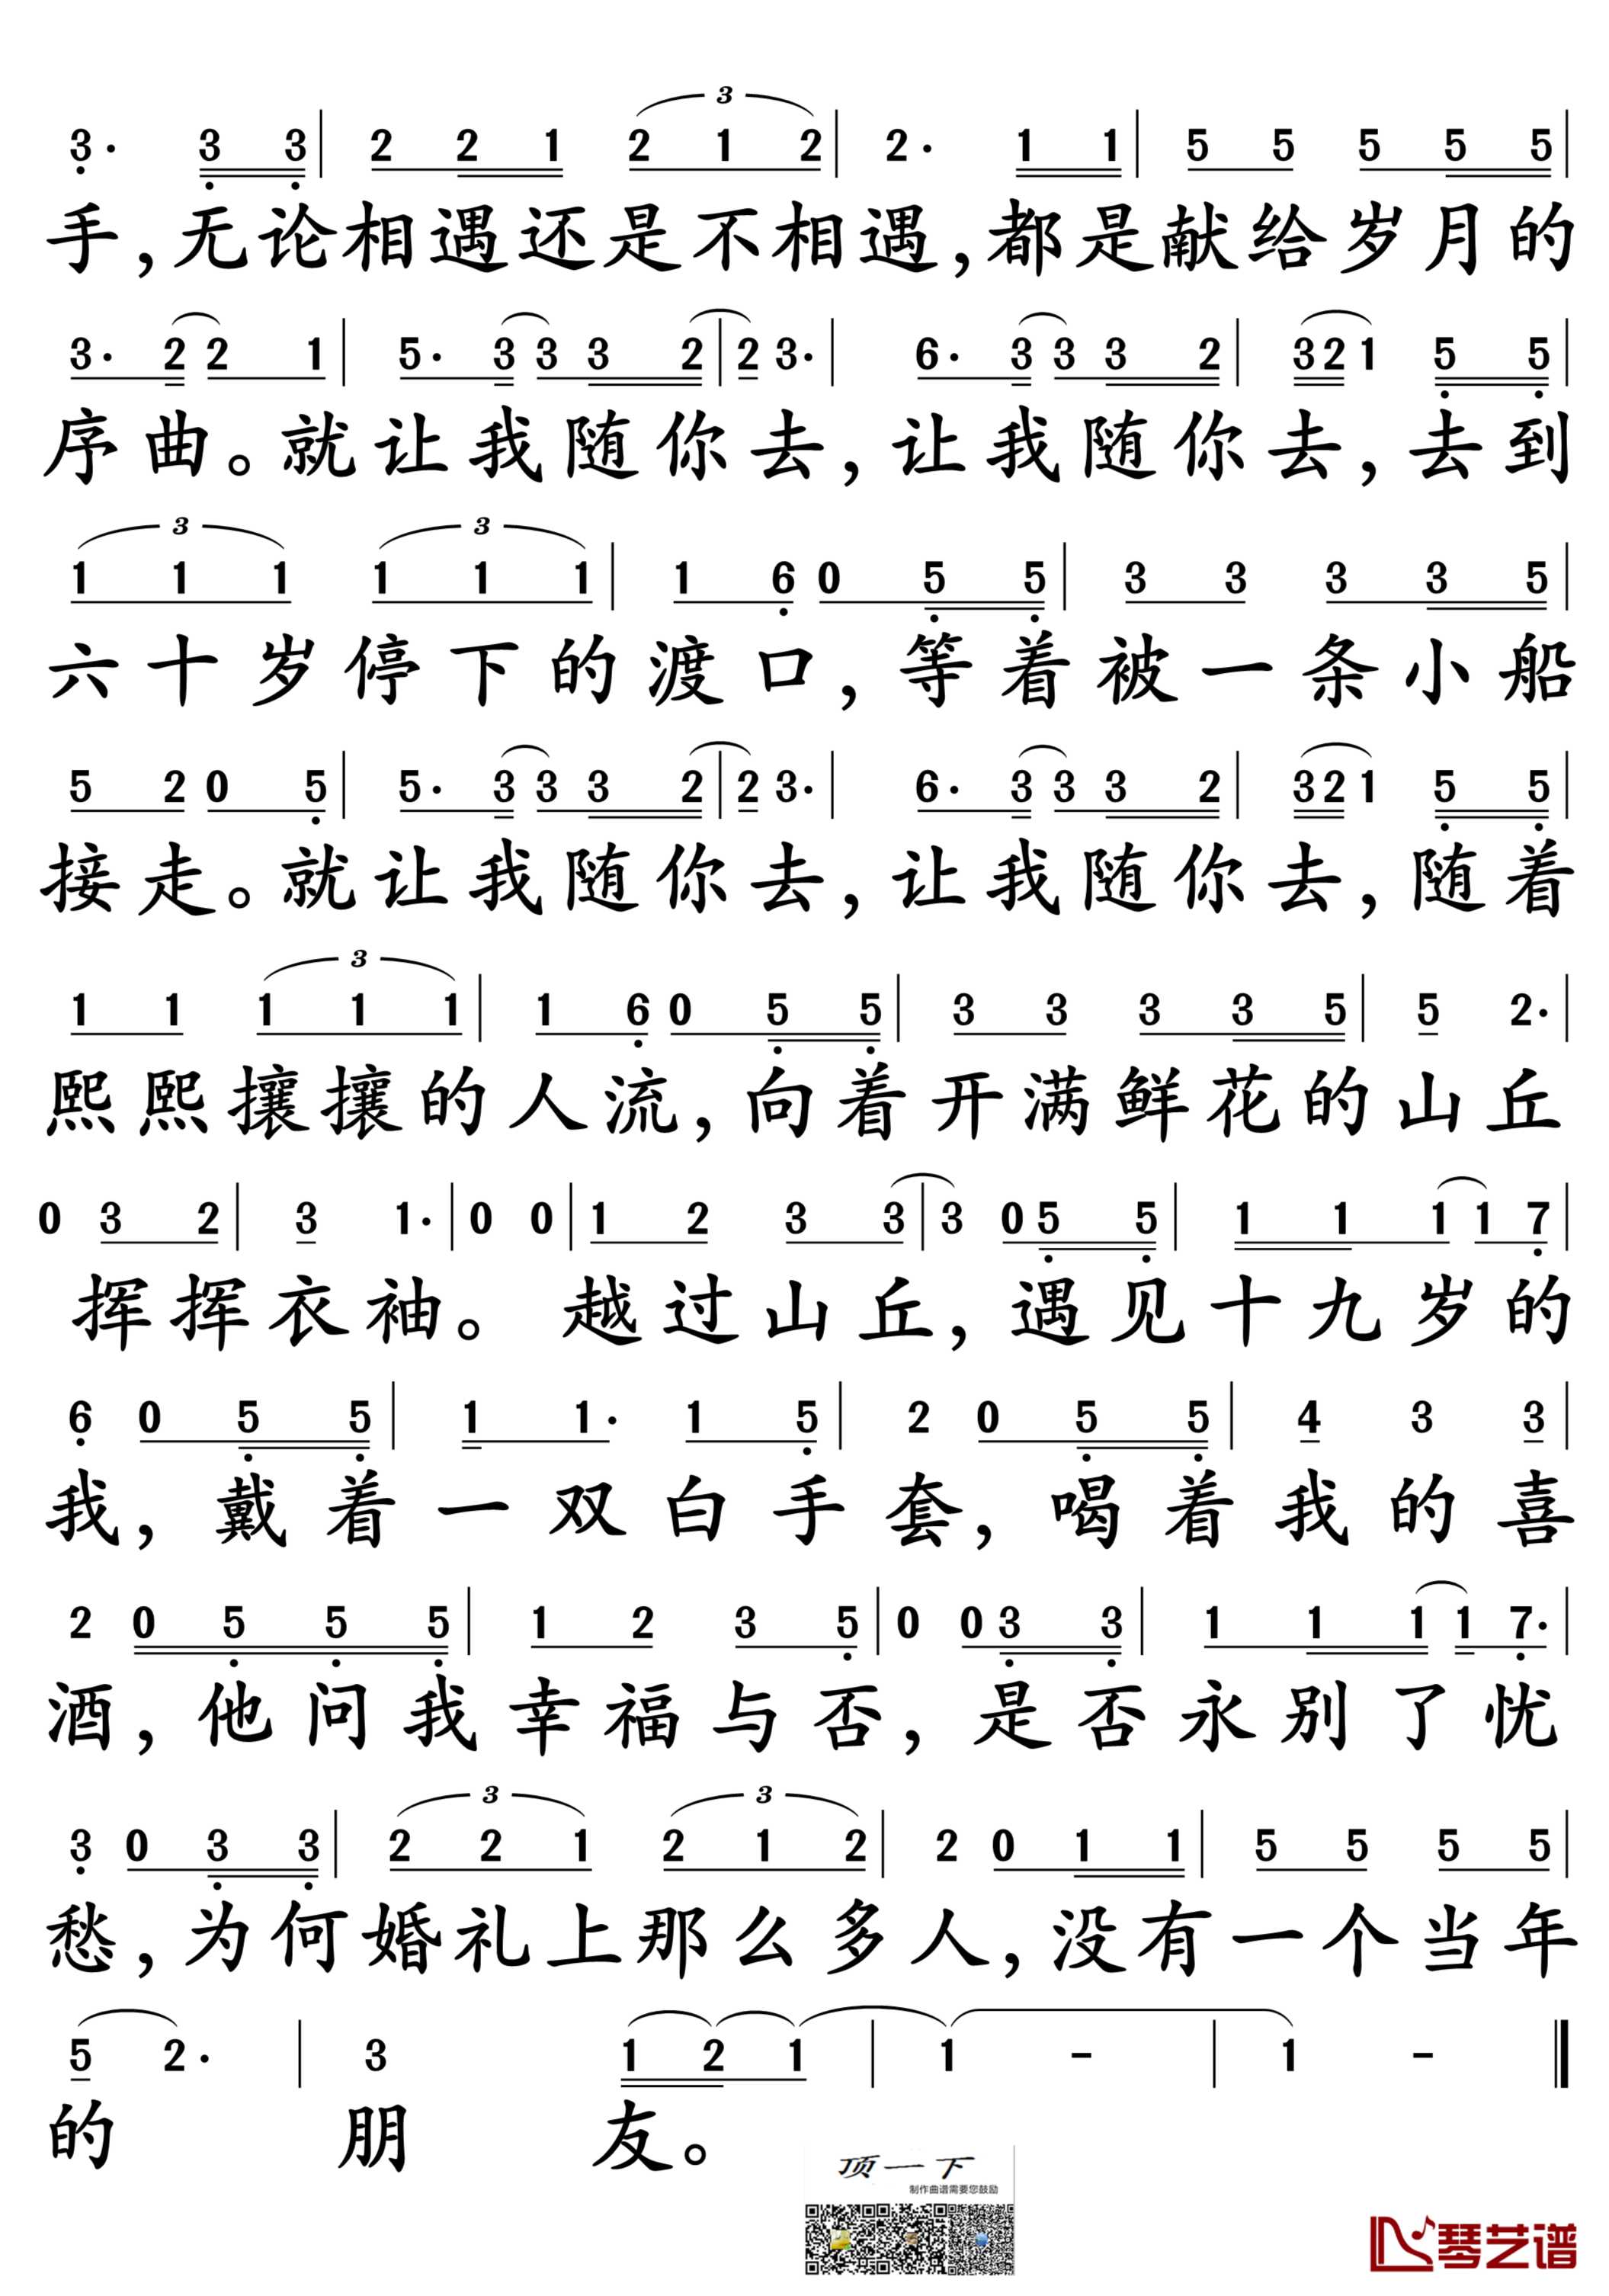 3· 3 3 | 2 2 1 2 1 2 | 2· 1 1 | 5 5 5 5 5 |
3
手，无论相遇还是不相遇，都是献给岁月的
3· 2 2 1 | 5· 3 3 3 2 | 2 3· | 6· 3 3 3 2 | 3 2 1 5 5 |
序曲。就让我随你去，让我随你去，去到
3 3
1 1 1 1 1 1 | 1 6 0 5 5 | 3 3 3 3 5 |
六十岁停下的渡口，等着被一条小船
5 2 0 5 | 5· 3 3 3 2 | 2 3· | 6· 3 3 3 2 | 3 2 1 5 5 |
接走。就让我随你去，让我随你去，随着
3
1 1 1 1 1 | 1 6 0 5 5 | 3 3 3 3 5 | 5 2· |
熙熙攘攘的人流，向着开满鲜花的山丘
0 3 2 | 3 1· | 0 0 | 1 2 3 3 | 3 0 5 5 | 1 1 1 1 7 |
挥挥衣袖。越过山丘，遇见十九岁的
6 0 5 5 | 1 1· 1 5 | 2 0 5 5 | 4 3 3 |
我，戴着一双白手套，喝着我的喜
2 0 5 5 5 | 1 2 3 5 | 0 0 3 3 | 1 1 1 1 7· |
酒，他问我幸福与否，是否永别了忧
3 3
3 0 3 3 | 2 2 1 2 1 2 | 2 0 1 1 | 5 5 5 5 |
愁，为何婚礼上那么多人，没有一个当年
5 2· | 3 1 2 1 | 1 - | 1 - ‖
的朋友。
顶一下
制作曲谱需要您鼓励
琴艺谱